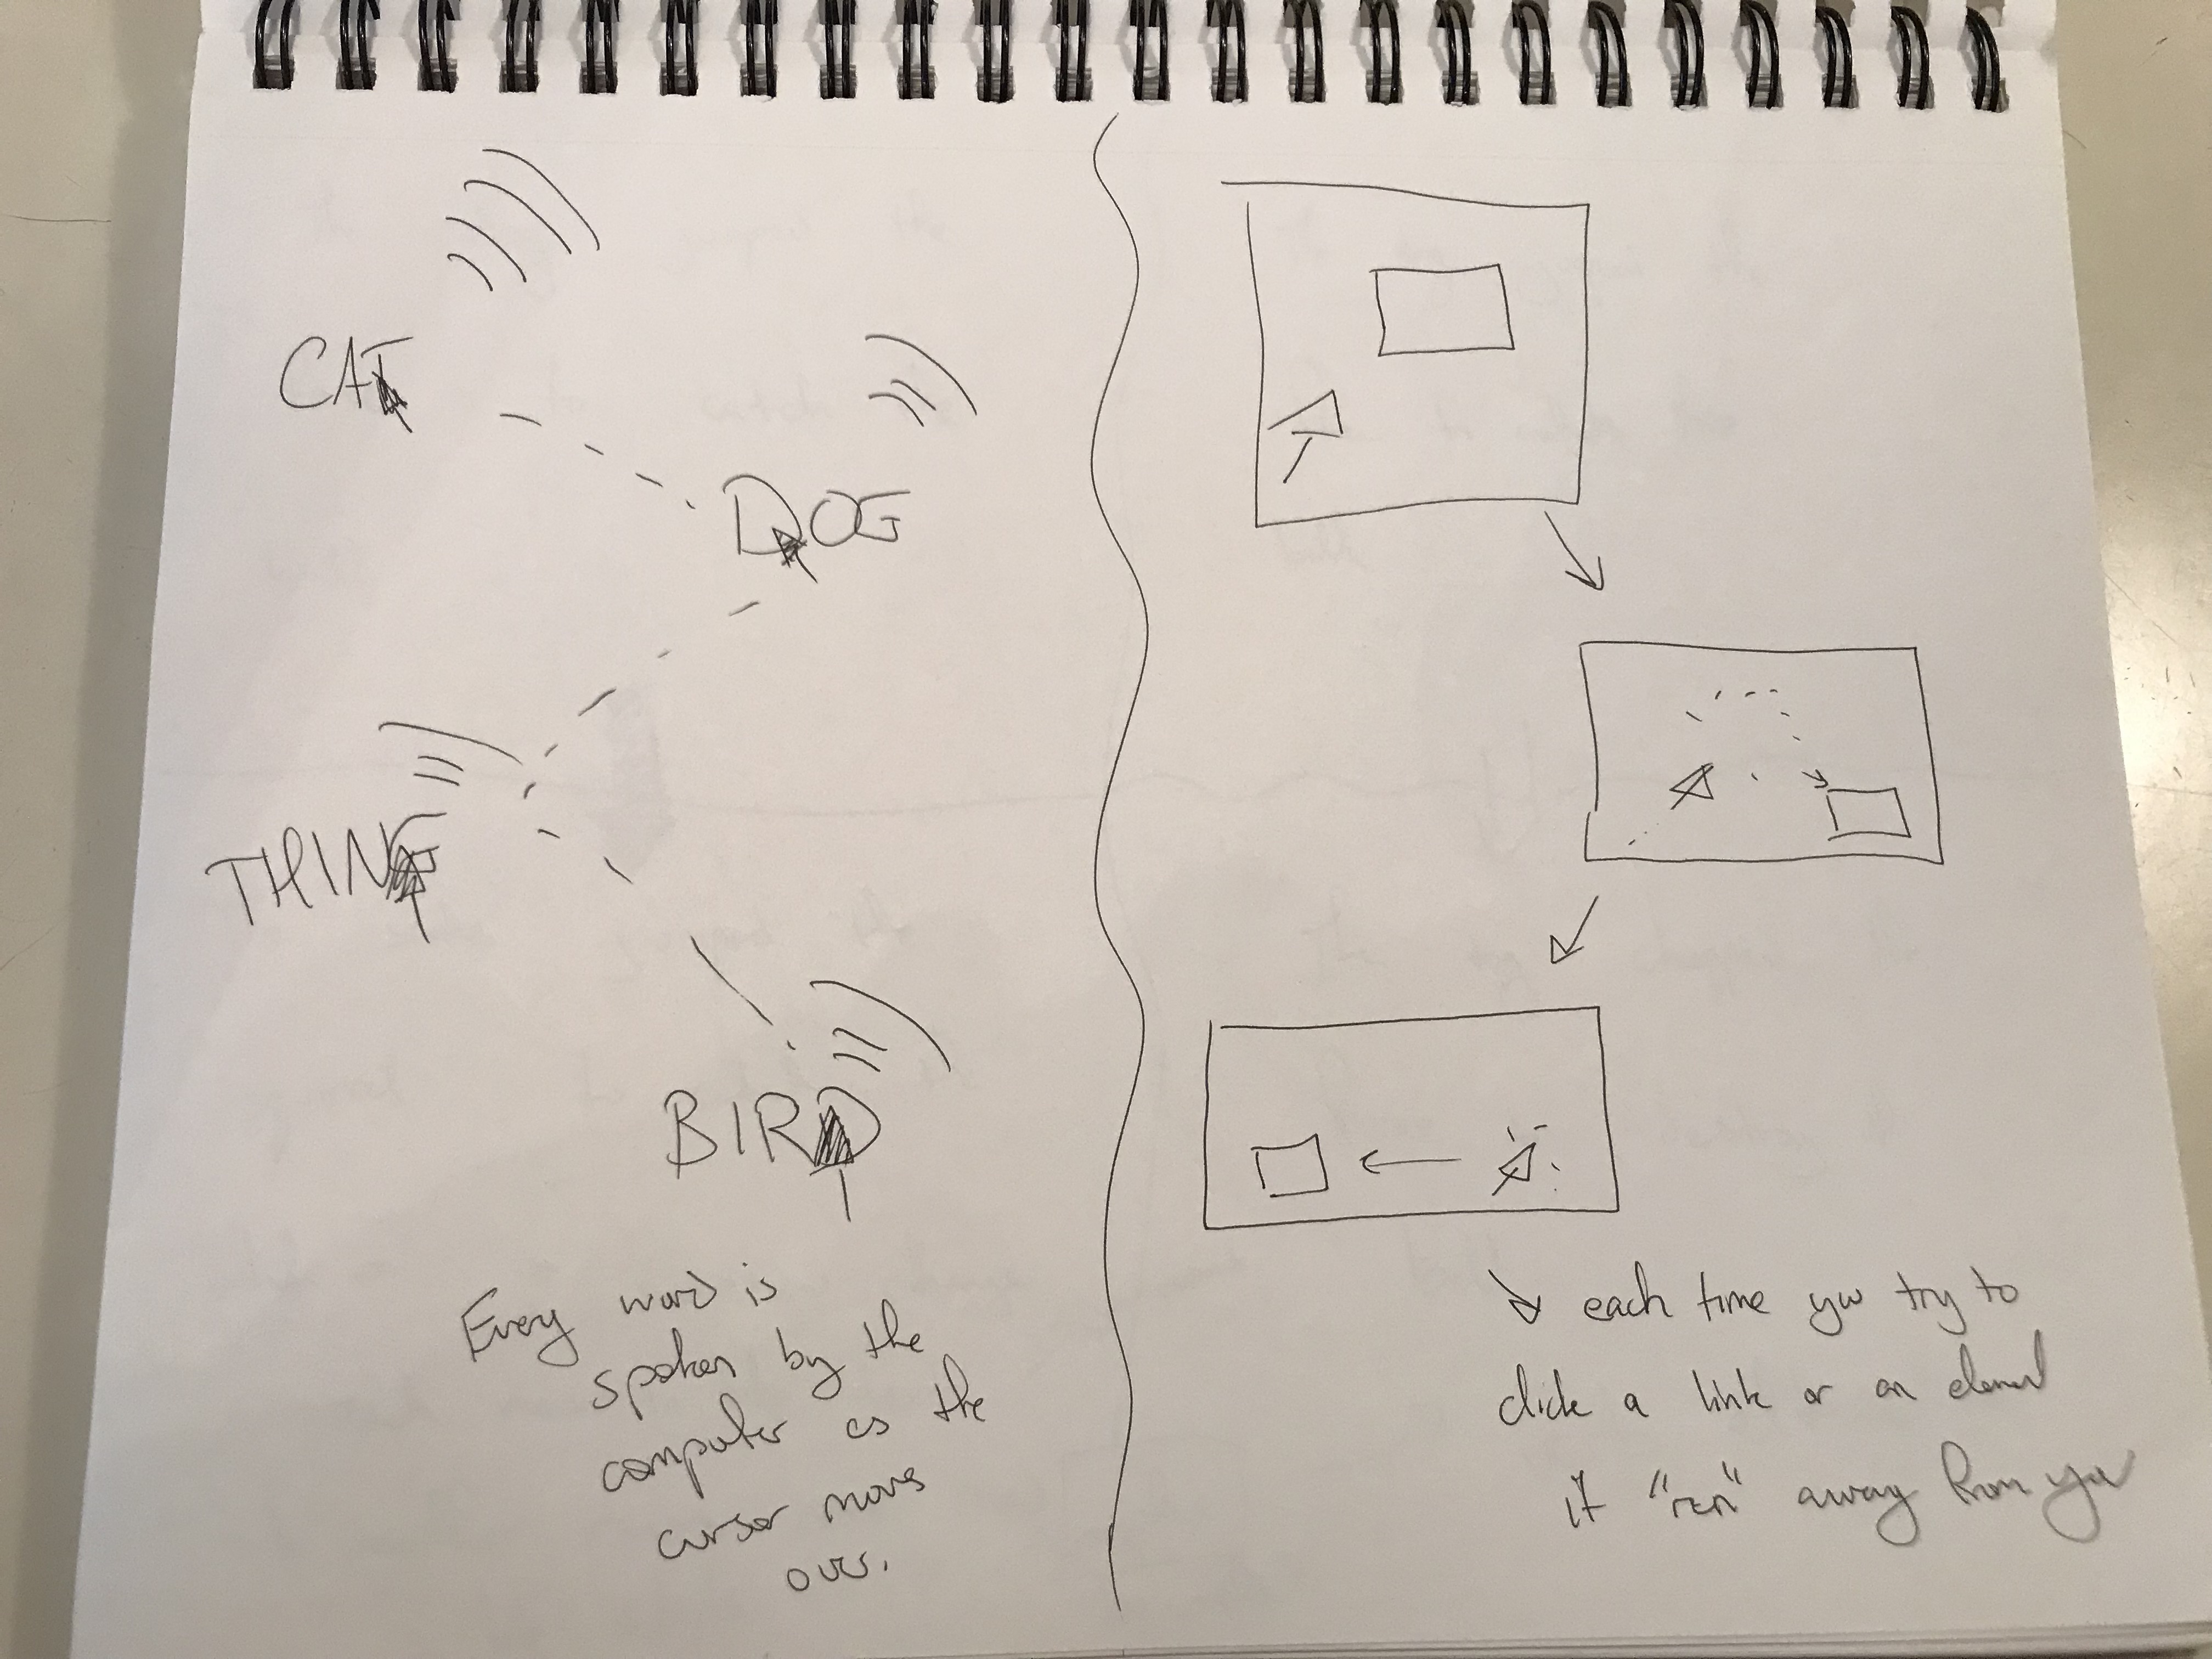 CAT
DOG
THING
BIRD
Every word is
spoken by the
computer as the
cursor moves
over.
each time you try to
click a link or an element
it "ran" away from you